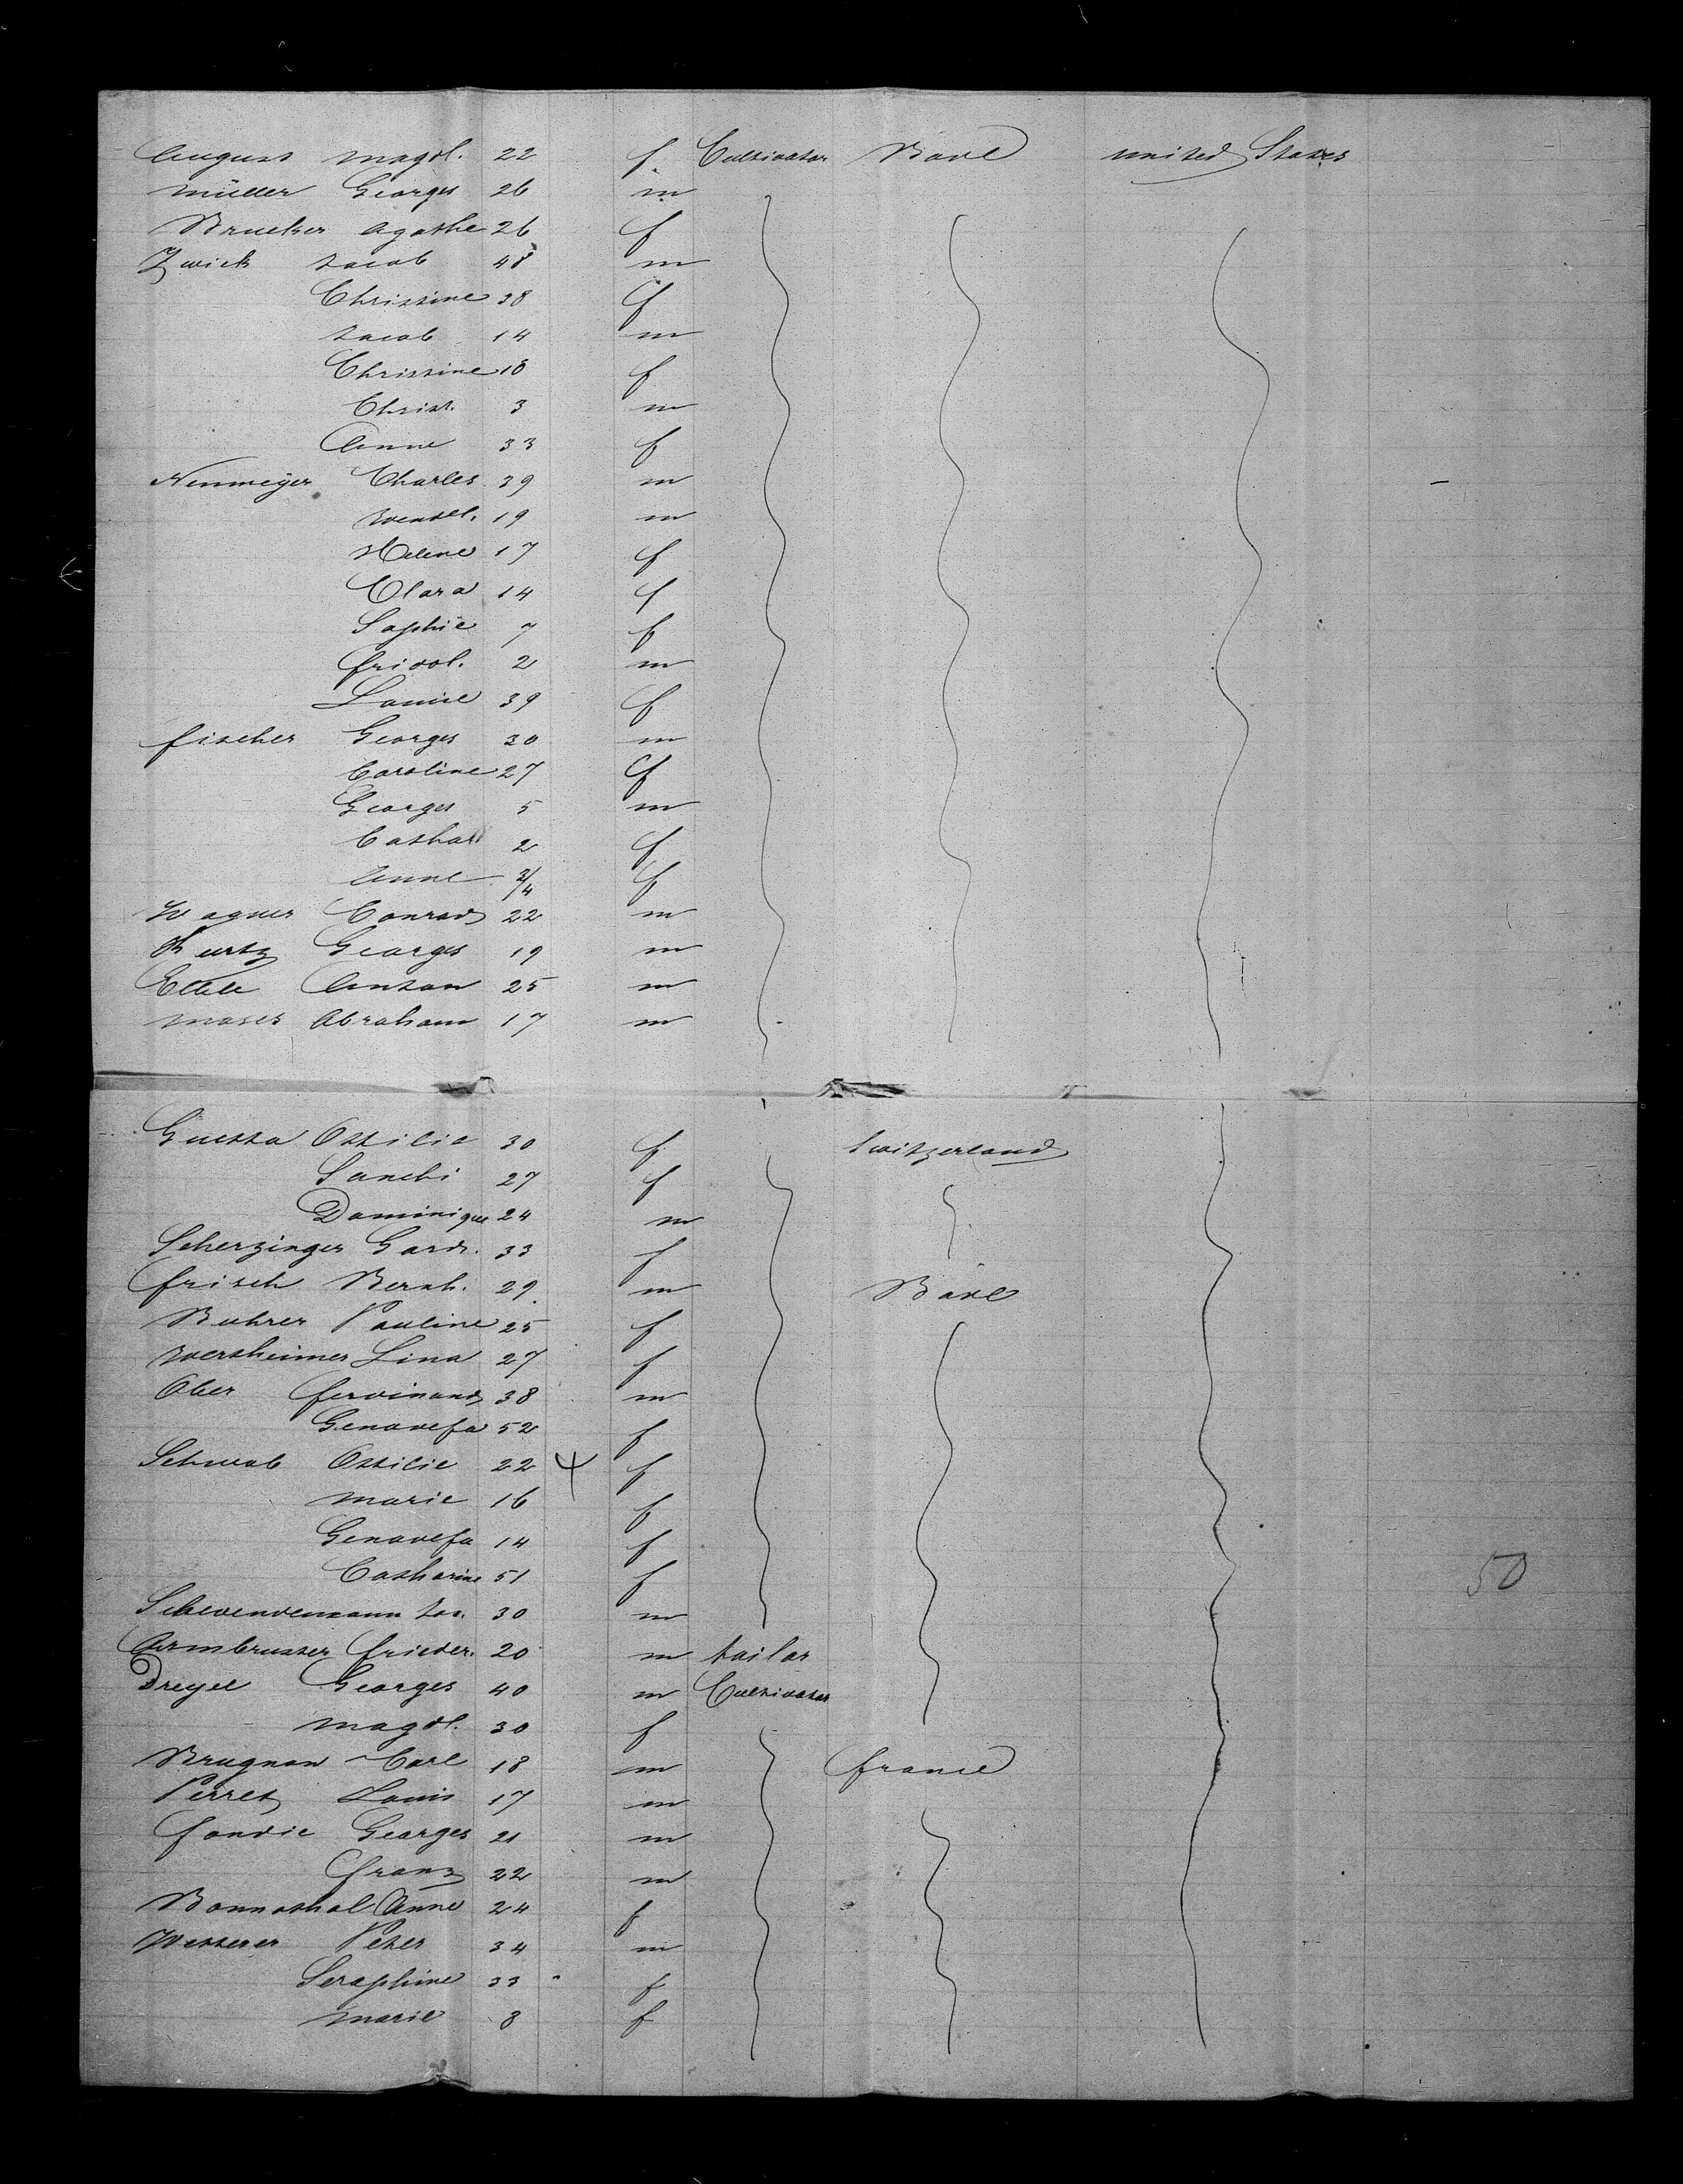 August Magdl. 22 f Cultivator Bade united States
Müller Georges 26 m
Brucker Agathe 26 f
Zwick Jacob 48 m
Christine 38 f
Jacob 14 m
Christine 10 f
Christ. 3 m
Anne 33 f
Neumeÿer Charles 39 m
Wendel. 19 m
Helene 17 f
Clara 14 f
Sophie 7 f
fridol. 2 m
Louise 39 f
fischer Georges 30 m
Caroline 27 f
Georges 5 m
Cathar 2 f
Anne 3/4 f
Wagner Conrad 22 m
Kurtz Georges 19 m
Anton 25 m
Moses Abraham 17 m
Ottilie 30 f Switzerland
27 f
Dominique 24 m
Scherzinger 33 f
frisch Bernh. 29 m Bade
Buhrer Pauline 25 f
Wertheimer Lina 27 f
Ober ferdinand 38 m
Genovefa 52 f
Schwab Ottilie 22 f
Marie 16 f
Genovefa 14 f
Catharine 51 f
50
Schwendemann Jos. 30 m
Armbruster frieder. 20 m tailor
Georges 40 m Cultivator
Magdl. 30 f
Brugnon Carl 18 m france
Perret Louis 17 m
Georges 21 m
franz 22 m
Bonnothal Anne 24 f
Wetterer Peter 34 m
Seraphine 33 f
Marie 8 f